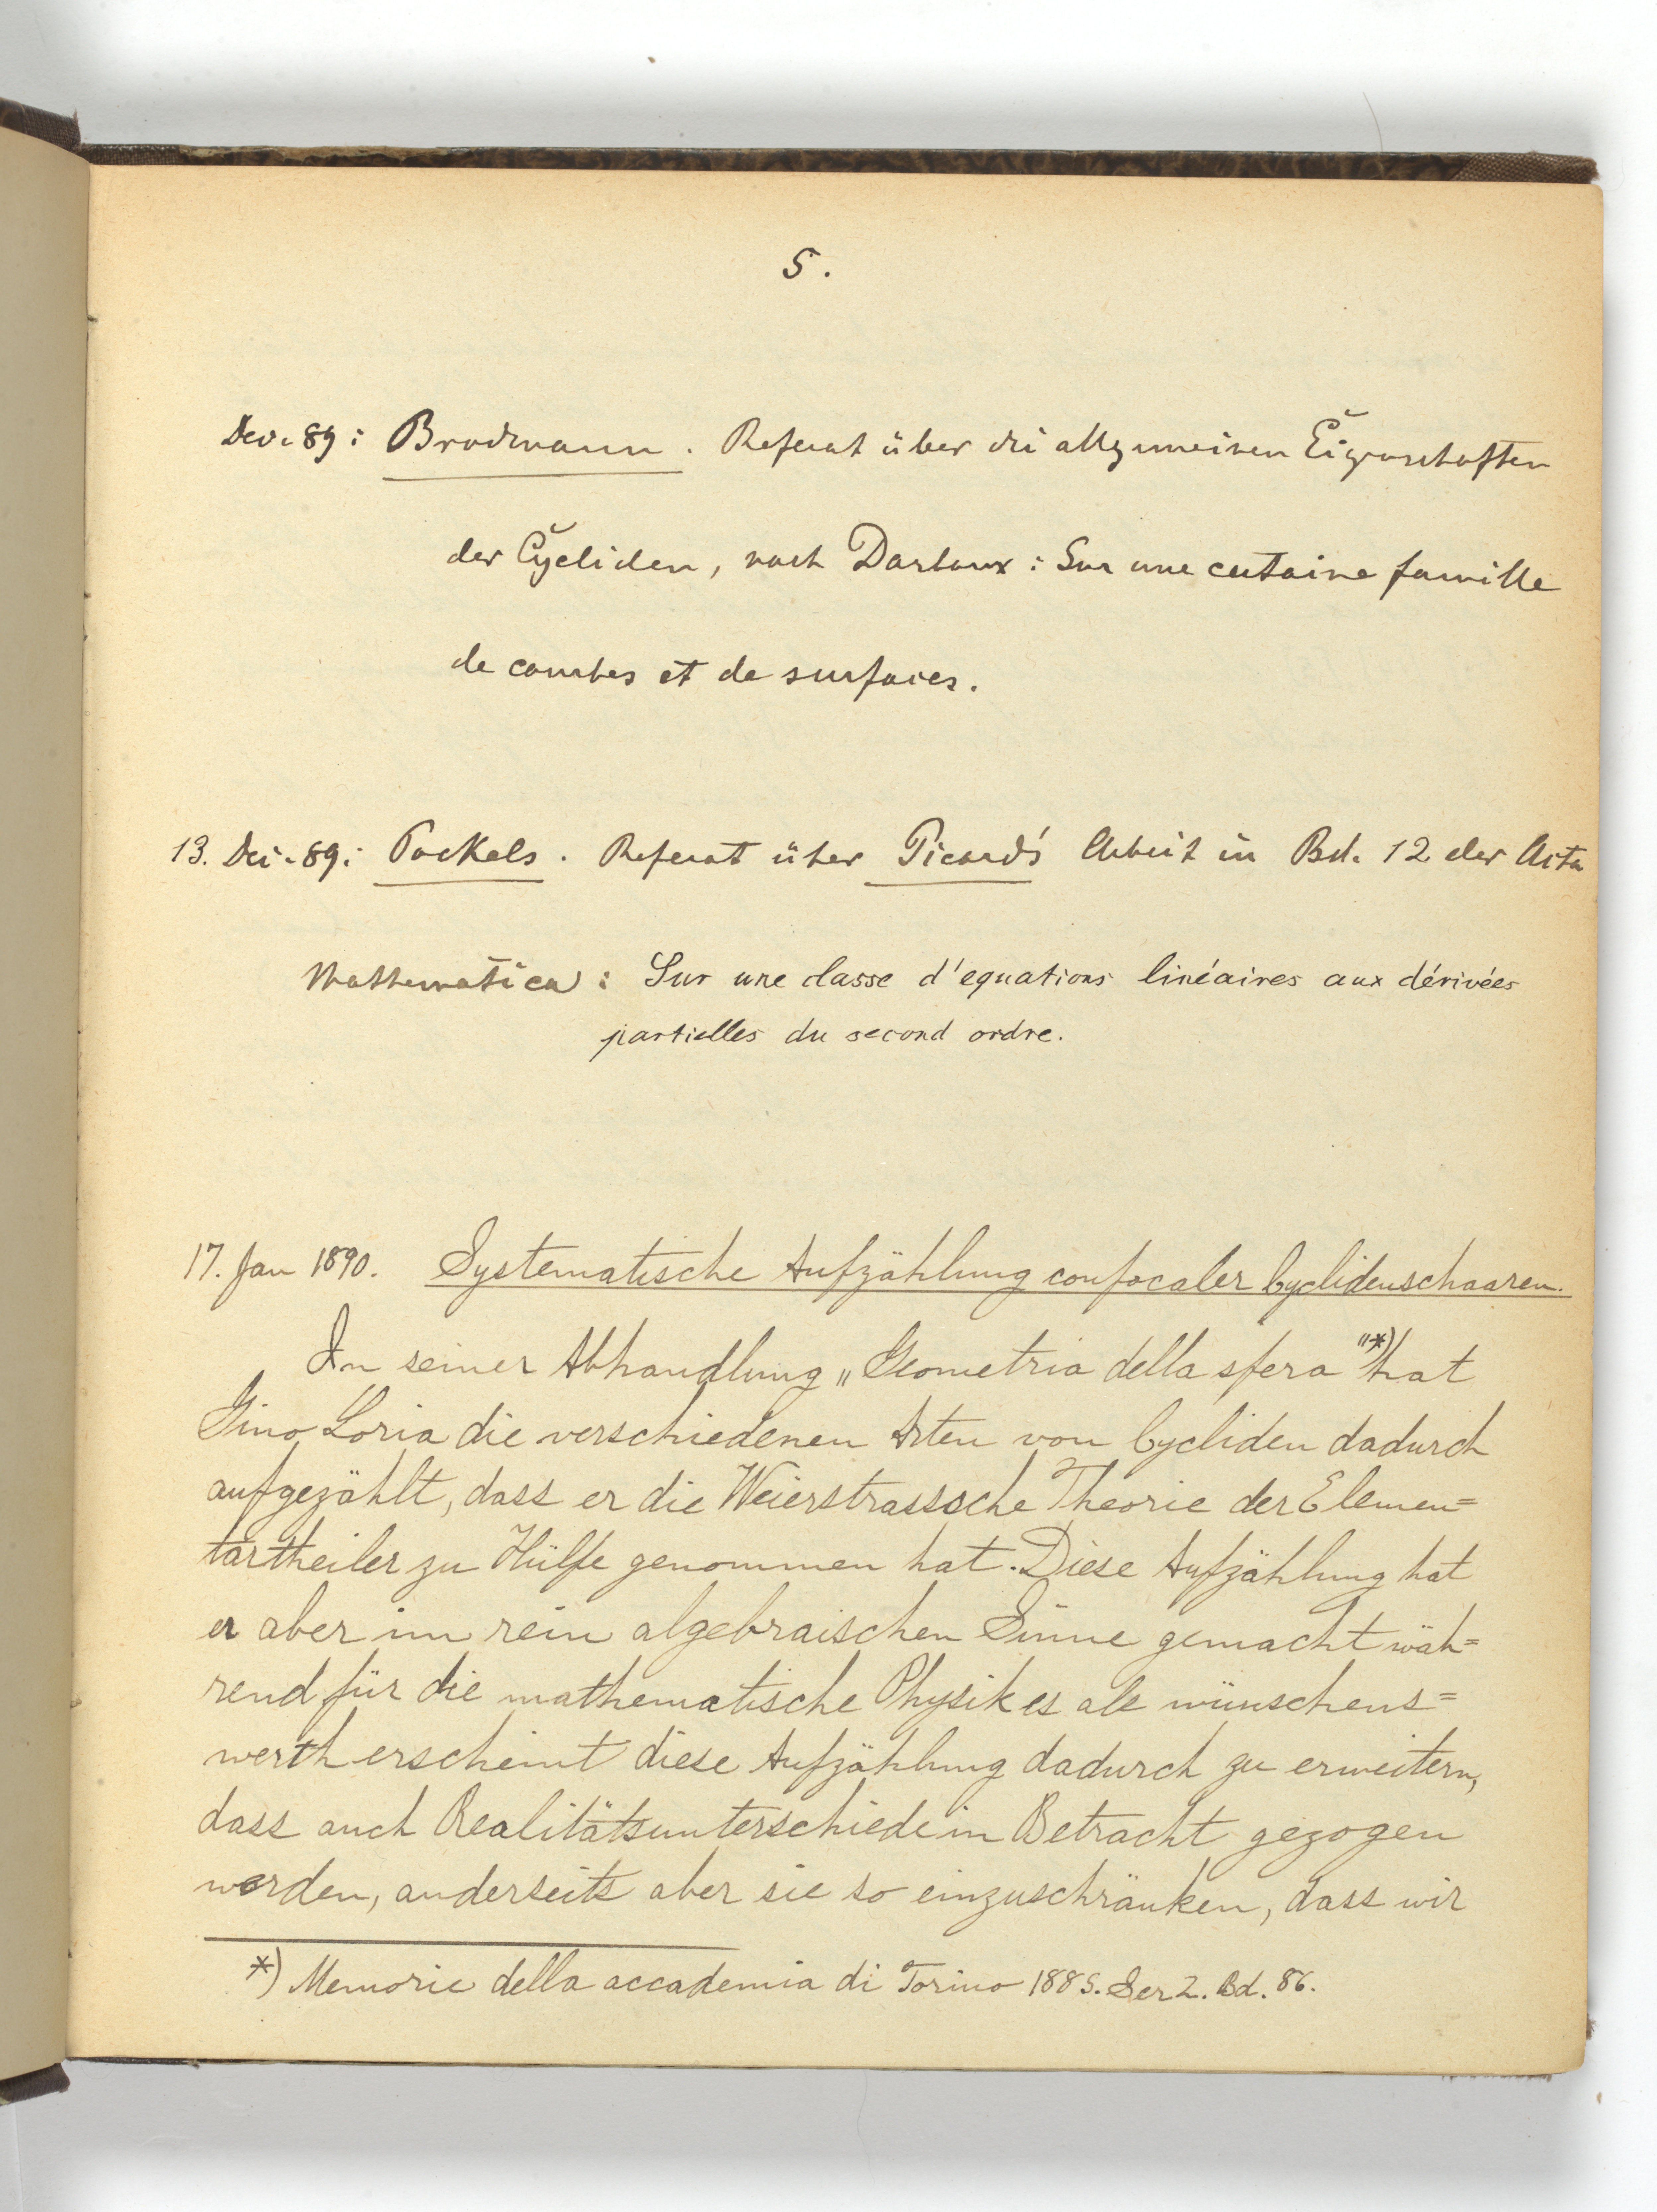 5.
Dec. 89: Brodmann. Referat über die allgemeinen Eigenschaften
der Cycliden, nach Darboux: Sur une certaine famille
de courbes et de surfaces.
13. Dec. 89: Pockels. Referat über Picard's Arbeit in Bd. 12 der Acta
Mathematica: Sur une classe d'equations linéaires aux dérivées
partielles du second ordre.
17. Jan 1890. Systematische Aufzählung confocaler Cyclidenschaaren.
In seiner Abhandlung „Geometria della sfera"*) hat
Gino Loria die verschiedenen Arten von Cycliden dadurch
aufgezählt, dass er die Weierstrasssche Theorie der Elemen=
tartheiler zu Hülfe genommen hat. Diese Aufzählung hat
er aber im rein algebraischen Sinne gemacht wäh=
rend für die mathematische Physik es als wünschens=
werth erscheint diese Aufzählung dadurch zu erweitern,
dass auch Realitätsunterschiede in Betracht gezogen
werden, anderseits aber sie so einzuschränken, dass wir
*) Memorie della accademia di Torino 1885. Ser 2. Bd. 86.